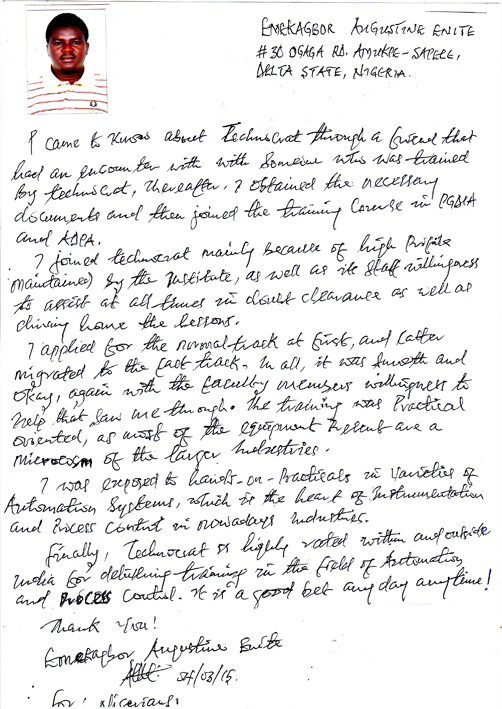 EMEKAGBOR AUGUSTINE ENITE
#30 OGAGA RD. AMUKPE-SAPELE,
DELTA STATE, NIGERIA.
I came to know about Technocrat through a friend that
had an encounter with with someone who was trained
by technocrat, thereafter. I obtained the necessary
documents and then joined the training Course in PGDIA
and ADPA.
I joined technocrat mainly because of high Profile
maintained by the Institute, as well as its Staff willingness
to assist at all times in doubt clearance as well as
driving home the lessons.
I applied for the normal track at first, and latter
migrated to the fast track. In all, it was smooth and
okay, again with the faculty members willingness to
help that saw me through. The training was Practical
oriented, as most of the equipment Present are a
microcosm of the larger Industries.
I was exposed to hands-on-Practicals in Varieties of
Automation Systems, which is the heart of Instrumentation
and Process Control in nowadays Industries.
Finally, Technocrat is highly rated within and outside
India for delivering training in the field of Automation
and Process Control. It is a good bet any day anytime!
Thank You!
Emekagbor Augustine Enite
04/03/15.
For: Nigerians: